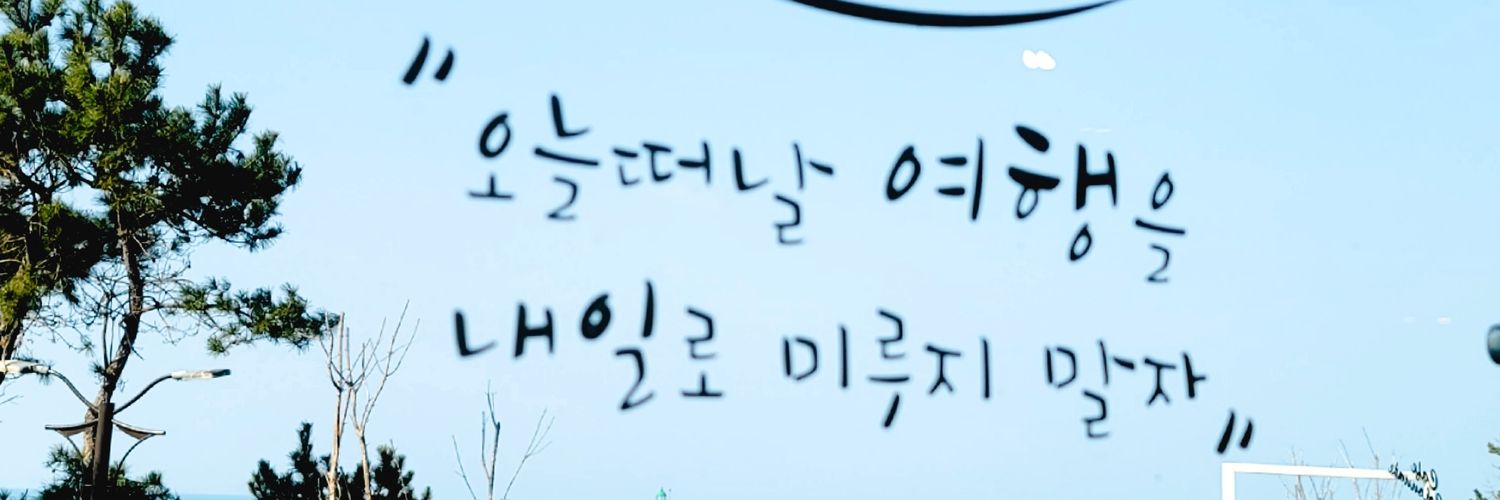 "오늘떠날 여행을
내일로 미루지 말자"